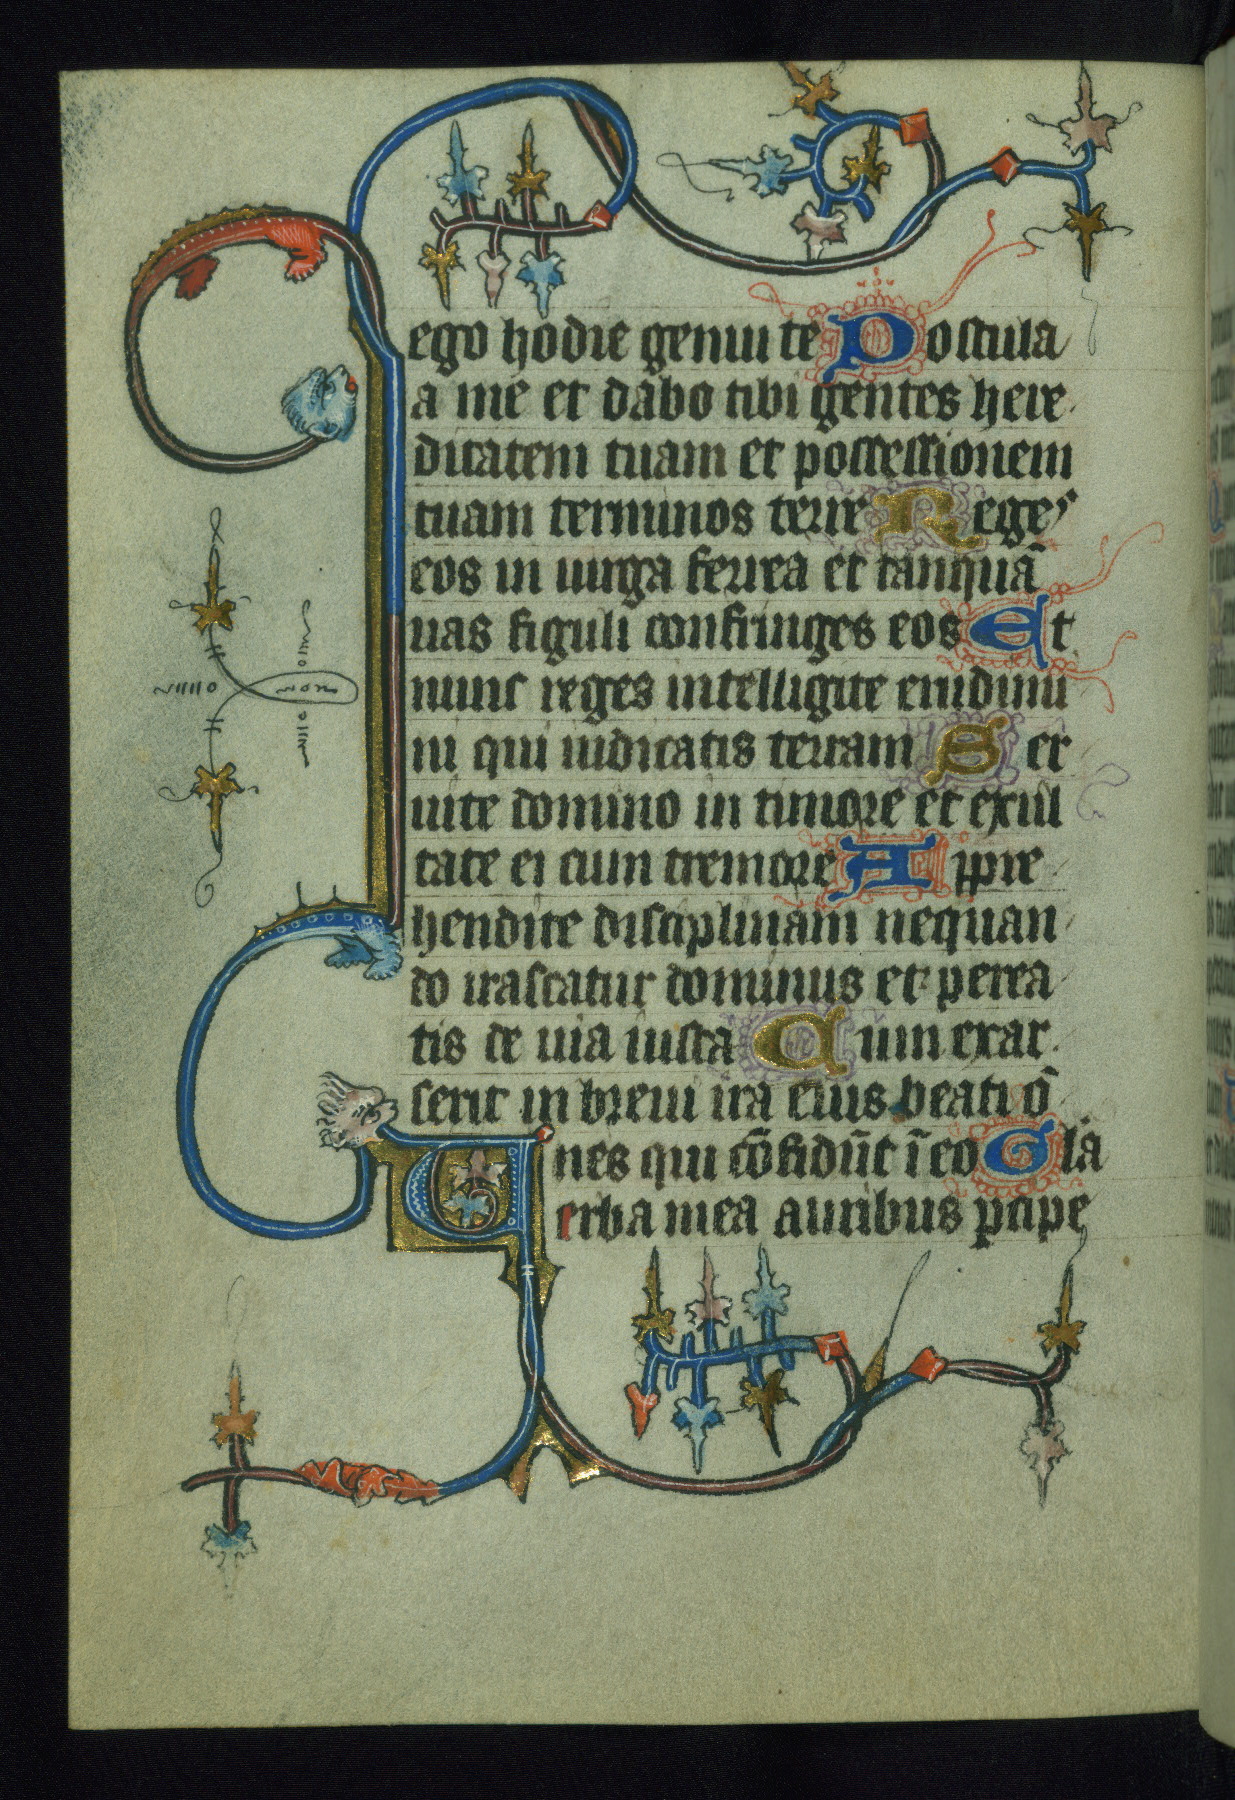 ego hodie genui te Postula
a me et dabo tibi gentes here
ditatem tuam et possessionem
tuam terminos terre Reges
eos in uirga ferrea et tanquā
uas figuli confringes eos Et
nunc reges intelligite erudimi
ni qui iudicatis terram Ser
uite domino in timore et exul
tate ei cum tremore Appre
hendite disciplinam nequan
do irascatur dominus et perea
tis de uia iusta Cum exar
serit in breui ira eius beati oм̄
nes qui cōfidūt ī eo Gla
Uerba mea auribus pcipe